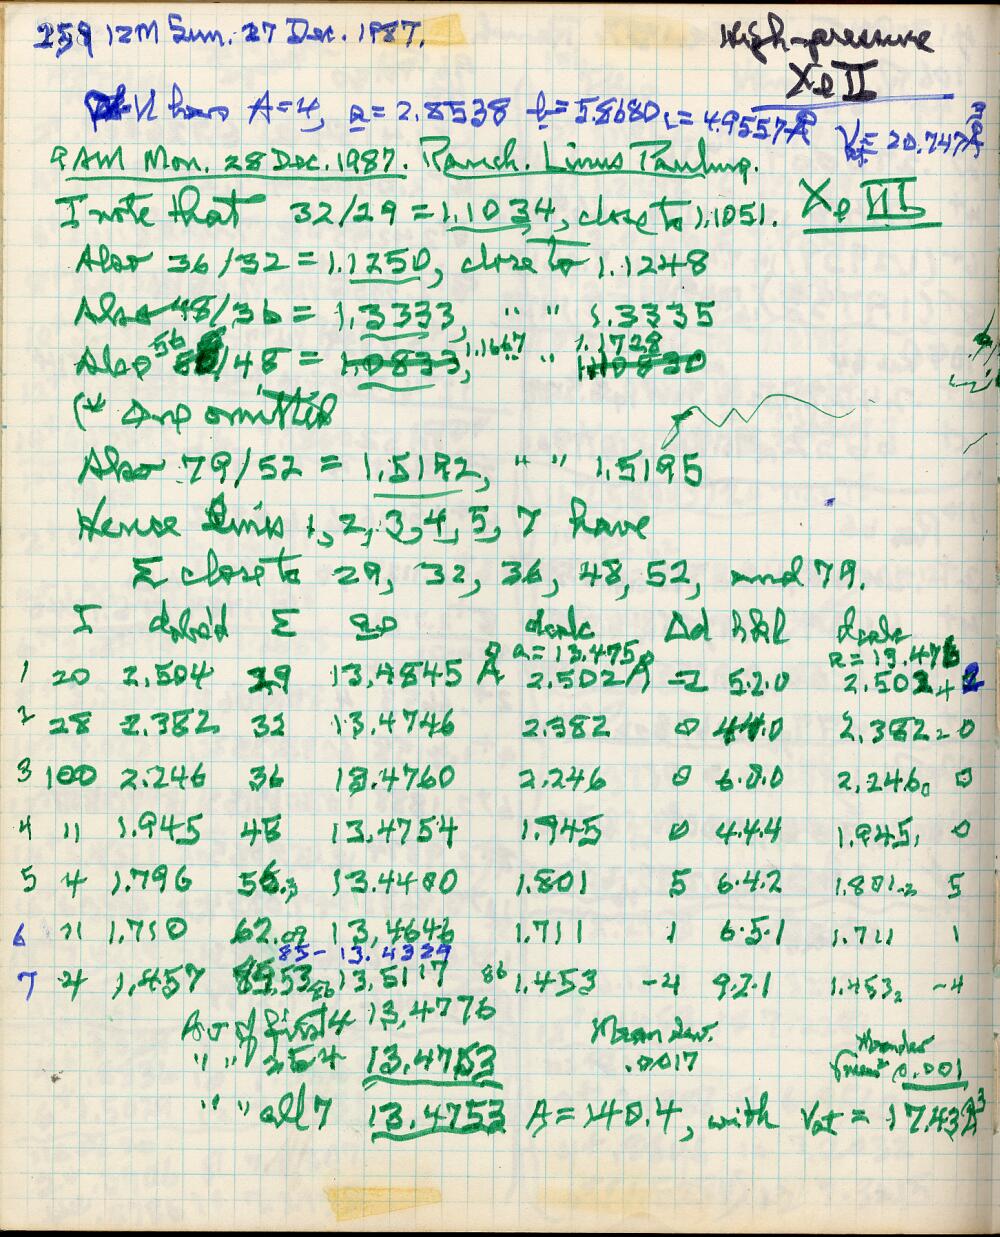 259 12M Sun. 27 Dec. 1987.
High-pressure
Xe II
A=4, a=2.8538 b=5.8680, c=4.9557Å Vat=20.747Å3
9 AM Mon. 28 Dec. 1987. Ranch. Linus Pauling.
Xe III
I note that 32/29 = 1.1034, close to 1.1051.
Also 36/32 = 1.1250, close to 1.1248
Also 48/36 = 1.3333, " " 1.3335
Also 56/48 = 1.0833, 1.1667 " " 1.1728
(* omitted
Also 79/52 = 1.5192, " " 1.5195
Hence lines 1, 2, 3, 4, 5, 7 have
Σ close to 29, 32, 36, 48, 52, and 79.
I dobs'd Σ ao dcalc Δd hkl dcalc
a=13.475Å a=13.476
1 20 2.504 29 13.4845 Å 2.502Å -2 5.2.0 2.502 2
2 28 2.382 32 13.4746 2.382 0 4.4.0 2.382 0
3 100 2.246 36 13.4760 2.246 0 6.0.0 2.246 0
4 11 1.945 48 13.4754 1.945 0 4.4.4 1.945 0
5 4 1.796 56 13.4400 1.801 5 6.4.2 1.801 5
6 11 1.710 62 13.4646 1.711 1 6.5.1 1.711 1
85 - 13.4329
7 4 1.457 13.5117 86 1.453 -4 9.2.1 1.453 -4
Av of first 4 13.4776 Mean dev.
" " 3 & 4 13.4753 .0017 0.001
" " all 7 13.4753 A=140.4, with Vat = 17.43Å3